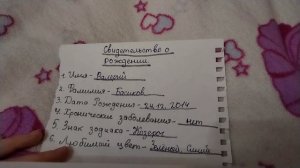 Свидетельство о
рождении.
1. Имя - Валерий
2. Фамилия - Божков
3. Дата Рождения - 24.12.2014
4. Хронические заболевания - нет
5. Знак зодиака - Козерог
6. Любимый цвет - Зелёный, Синий